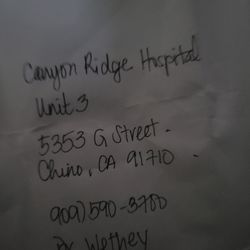 Canyon Ridge Hospital
Unit 3
5353 G Street.
Chino, CA 91710.
909) 590-3700
Dr. Wethey